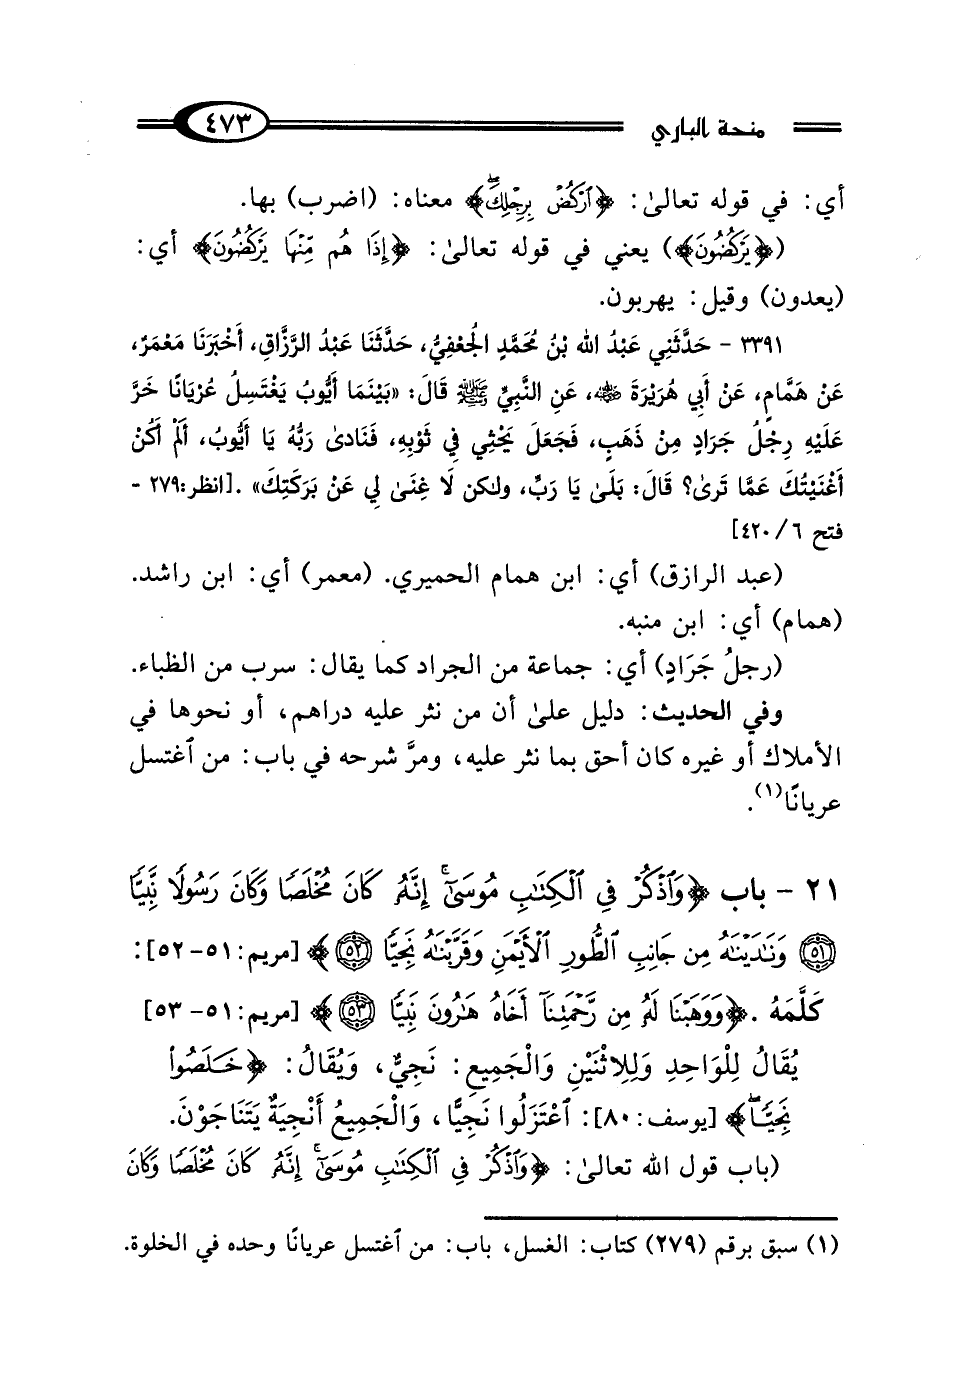 منحة الباري ٤٧٣
أي: في قوله تعالىٰ: ﴿ٱرۡكُضۡ بِرِجۡلِكَۖ﴾ معناه: (اضرب) بها.
(﴿يَرۡكُضُونَ﴾) يعني في قوله تعالىٰ: ﴿إِذَا هُم مِّنۡهَا يَرۡكُضُونَ﴾ أي:
(يعدون) وقيل: يهربون.
٣٣٩١ - حَدَّثَنِي عَبْدُ الله بْنُ مُحَمَّدٍ الجُعْفِيُّ، حَدَّثَنَا عَبْدُ الرَّزَّاقِ، أَخْبَرَنَا مَعْمَرٌ،
عَنْ هَمَّامٍ، عَنْ أَبِي هُرَيْرَةَ رضي الله عنه، عَنِ النَّبِيِّ ﷺ قَالَ: «بَيْنَمَا أَيُّوبُ يَغْتَسِلُ عُرْيَانًا خَرَّ
عَلَيْهِ رِجْلُ جَرَادٍ مِنْ ذَهَبٍ، فَجَعَلَ يَحْثِي فِي ثَوْبِهِ، فَنَادىٰ رَبُّهُ يَا أَيُّوبُ، أَلَمْ أَكُنْ
أَغْنَيْتُكَ عَمَّا تَرىٰ؟ قَالَ: بَلَىٰ يَا رَبِّ، ولكن لَا غِنَىٰ لِي عَنْ بَرَكَتِكَ» .[انظر:٢٧٩ -
فتح ٦/ ٤٢٠]
(عبد الرازق) أي: ابن همام الحميري. (معمر) أي: ابن راشد.
(همام) أي: ابن منبه.
(رجلُ جَرَادٍ) أي: جماعة من الجراد كما يقال: سرب من الظباء.
وفي الحديث: دليل علىٰ أن من نثر عليه دراهم، أو نحوها في
الأملاك أو غيره كان أحق بما نثر عليه، ومرَّ شرحه في باب: من ٱغتسل
عريانًا(١).
٢١ - باب ﴿وَٱذۡكُرۡ فِي ٱلۡكِتَٰبِ مُوسَىٰٓۚ إِنَّهُۥ كَانَ مُخۡلَصٗا وَكَانَ رَسُولٗا نَّبِيّٗا
٥١ وَنَٰدَيۡنَٰهُ مِن جَانِبِ ٱلطُّورِ ٱلۡأَيۡمَنِ وَقَرَّبۡنَٰهُ نَجِيّٗا ٥٢﴾ [مريم:٥١- ٥٢]:
كَلَّمَهُ .﴿وَوَهَبۡنَا لَهُۥ مِن رَّحۡمَتِنَآ أَخَاهُ هَٰرُونَ نَبِيّٗا ٥٣﴾ [مريم:٥١- ٥٣]
يُقَالُ لِلْوَاحِدِ وَلِلِاثْنَيْنِ وَالْجَمِيعِ: نَجِيٌّ، وَيُقَالُ: ﴿خَلَصُواْ
نَجِيّٗاۖ﴾ [يوسف:٨٠]: ٱعْتَزَلُوا نَجِيًّا، وَالْجَمِيعُ أَنْجِيَةٌ يَتَنَاجَوْنَ.
(باب قول الله تعالىٰ: ﴿وَٱذۡكُرۡ فِي ٱلۡكِتَٰبِ مُوسَىٰٓۚ إِنَّهُۥ كَانَ مُخۡلَصٗا وَكَانَ
(١) سبق برقم (٢٧٩) كتاب: الغسل، باب: من ٱغتسل عريانًا وحده في الخلوة.